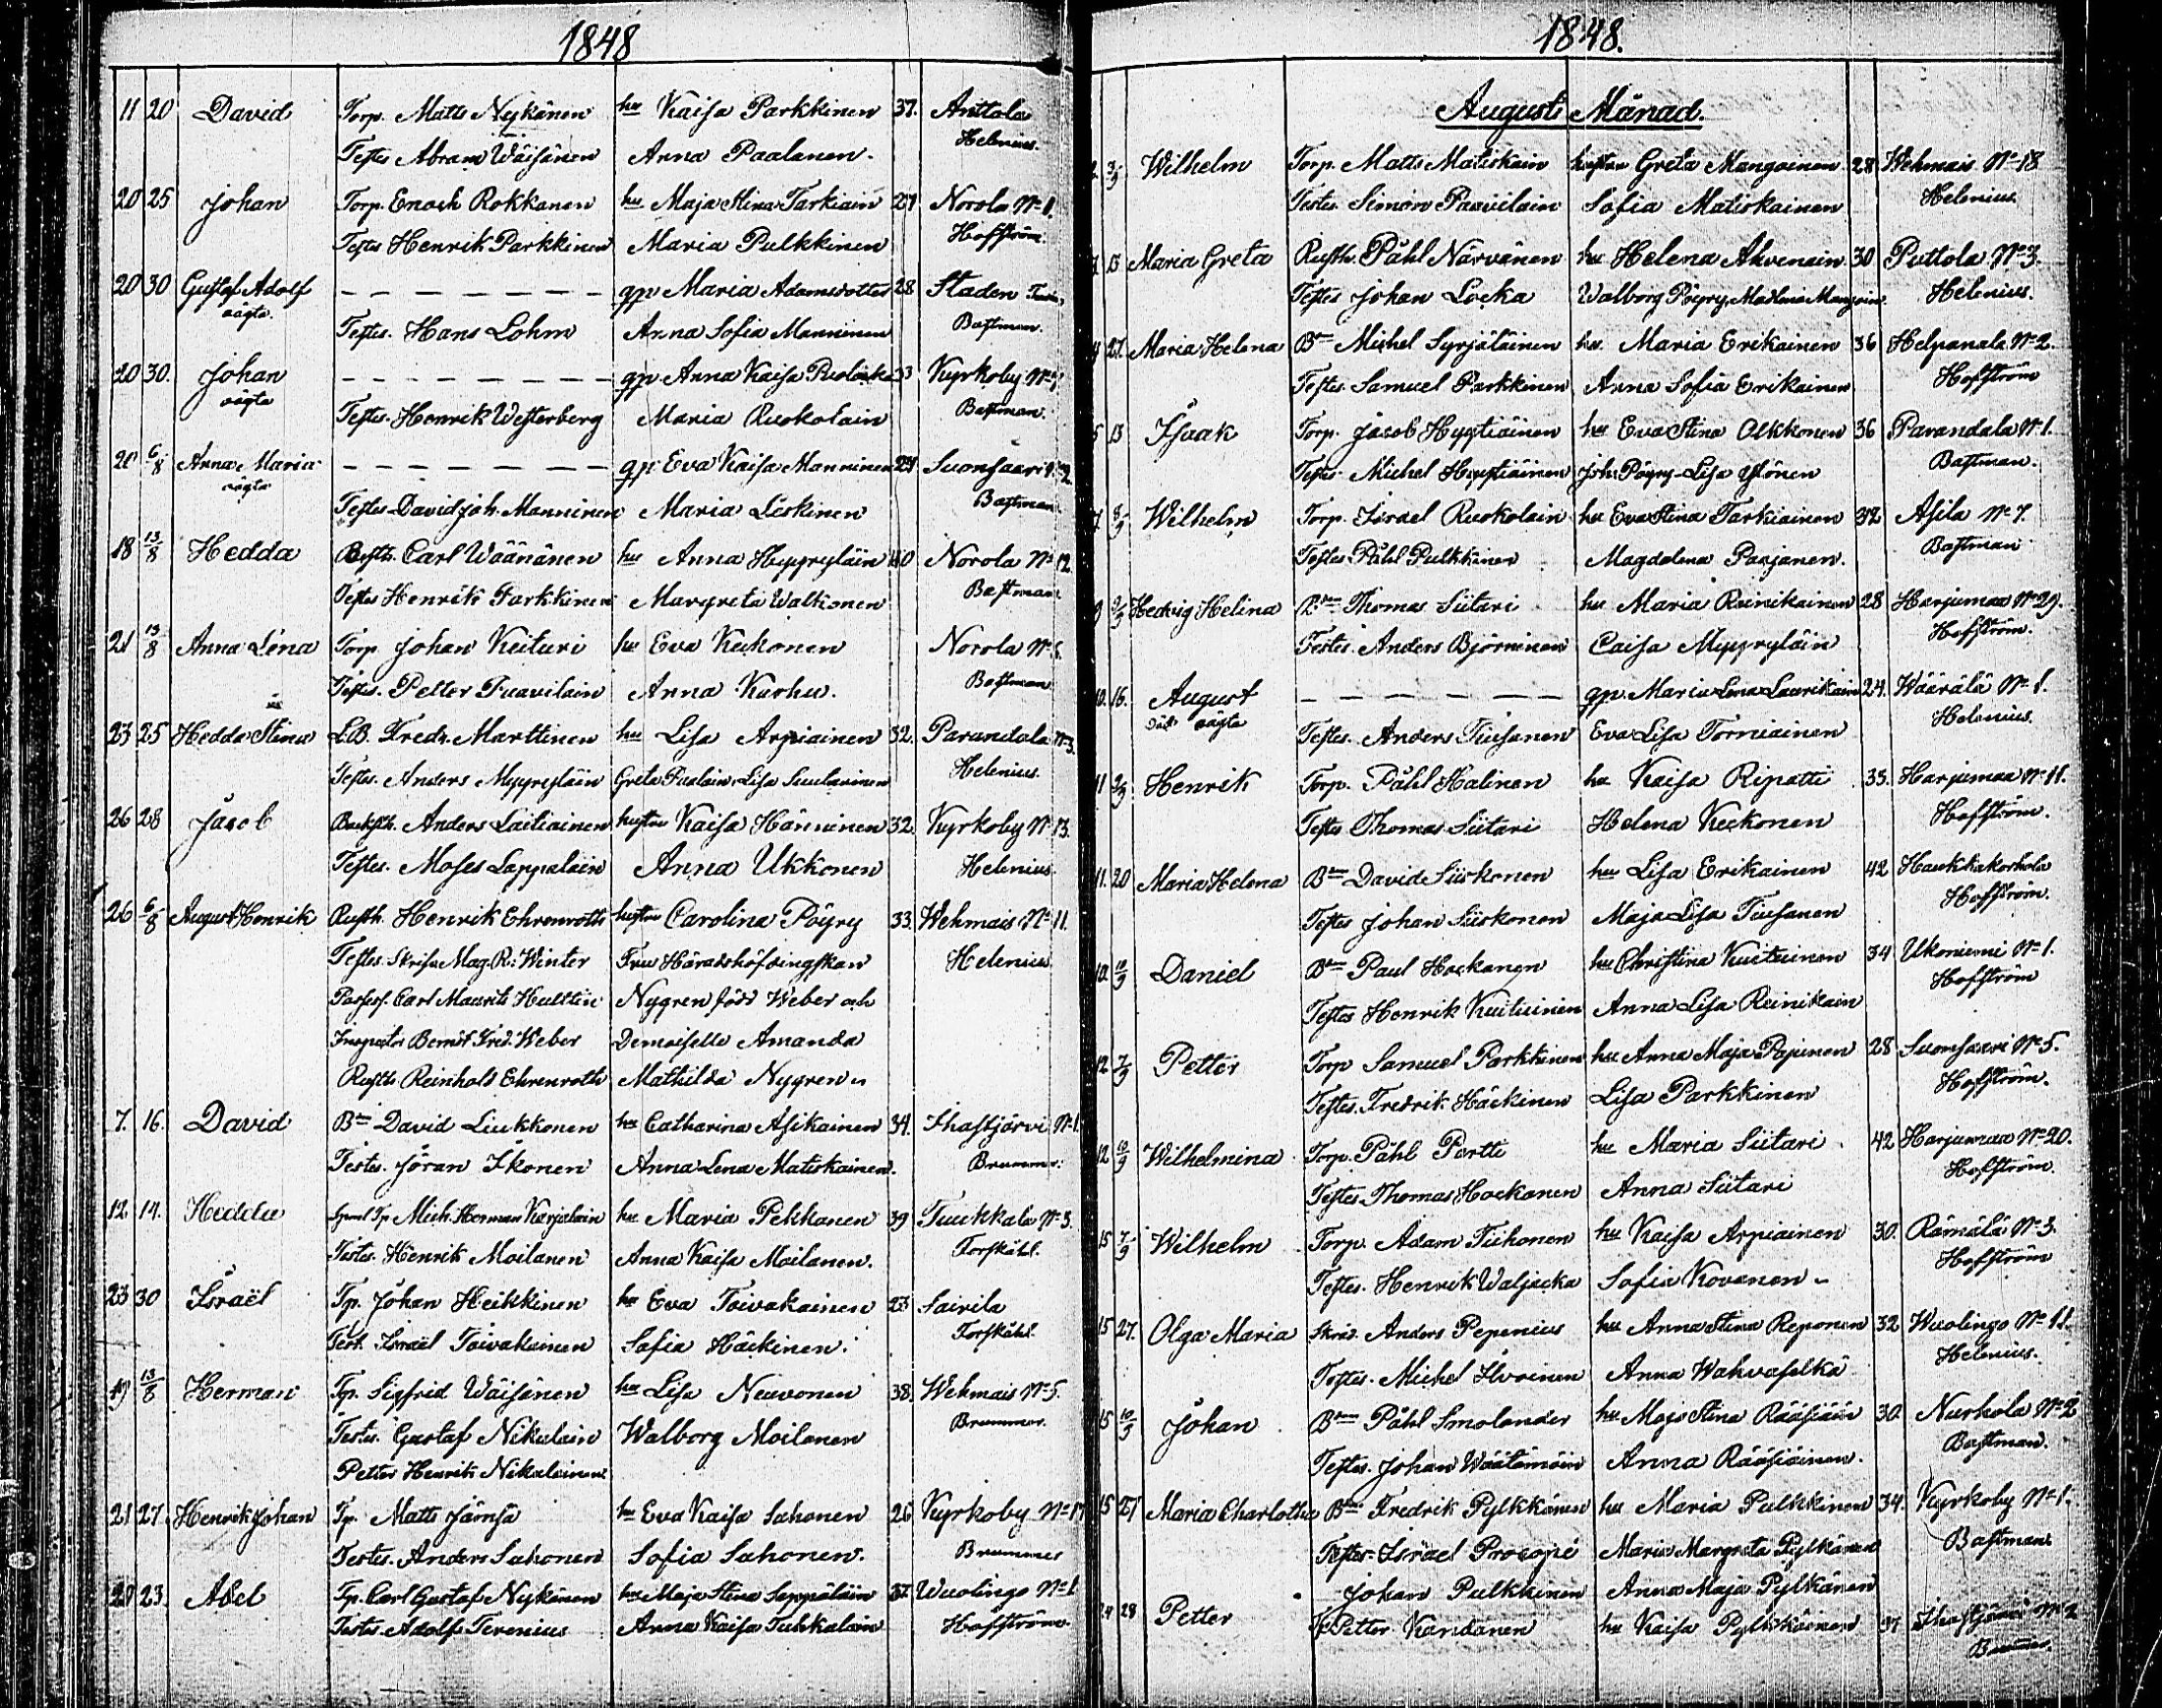 1848
11 20 David Torp. Matts Nykänen hu Kaisa Parkkinen 37. Anttola
Testes Abram Wäisänen Anna Paalanen. Helenius.
20 25 Johan Torp. Enoch Rokkanen hu Maja Stina Tarkiain 27 Norola No 1.
Testes Henrik Parkkinen Maria Pulkkinen Hoffström
20 30 Gustaf Adolf – – – – – – – gp Maria Adamsdotter 28 Staden
oägta. Testes. Hans Lohm Anna Sofia Manninen Bastman.
20 30. Johan – – – – – – – gp. Anna Kaisa 33 Kyrkoby
oägta Testes. Henrik Westerberg Maria Ruokolain Bastman.
21 6/8 Anna Maria – – – – – – – gp. Eva Kaisa Manninen 24. Suonsaari No 2
oägta Testes David Joh. Manninen Maria Liskinen Bastman
18 13/8 Hedda Rusth. Carl Wäänänen hu Anna Hyyryläin 40 Norola No 12
Testes Henrik Parkkinen Margreta Walkonen Bastman
21 13/8 Anna Lena Torp. Johan Keituri hu Eva Kekonen Norola No
Testes. Petter Paavilain Anna Kurhu. Bastman
23 25 Hedda Stina LB. Fredr. Marttinen hu Lisa Arpiainen 32. Parandala No 3.
Testes. Anders Myyryläin Greta Lisa Suularinen Helenius.
26 28 Jacob Backsth. Anders Laitiainen hustru Kaisa Hänninen 32. Kyrkoby No 13.
Testes. Moses Lappalain Anna Ukkonen Helenius
26 6/8 August Henrik Rusth. Henrik Ehrenroth hustru Carolina Pöyry 33. Wehmais No 11.
Testes. Mag. R: Winter Fru Häradshöfdingskan Helenius
Possess. Carl Maurits Hultin Nygren född Weber och
Inspector Berndt Fred. Weber Demoiselle Amanda
Rusth. Reinhold Ehrenroth Mathilda Nygren
7. 16. David Bon David Liukkonen hu Catharina Asikainen 34. Ihastjärvi No 1.
Testes. Jöran Ikonen Anna Lena Matiskainen. Brummer.
12 14. Hedda Mich. Herman Karjalain hu Maria Pekkanen 39 Tuukkala No 3.
Testes. Henrik Moilanen Anna Kaisa Moilanen. Forsståhl.
23 30 Israël Tp. Johan Heikkinen hu Eva Toivakainen 23 Sairila
Test. Israël Toivakainen Sofia Häckinen. Forsståhl.
19 13/8 Herman Tp. Sigfrid Wäisänen hu Lisa Neuvonen 38. Wehmais No 5.
Testes. Gustaf Nikulain Walborg Moilanen Brummer.
Petter Henrik Nikulainen
21 27. Henrik Johan Tp. Matts Jämsä hu Eva Kaisa Sahonen 26 Kyrkoby No 17
Testes. Anders Sahonen Sofia Sahonen. Brummer
20 23. Abel Tp. Carl Gustaf Nykänen hu Maja Stina Seppäläin 37. Wuolingo No 1.
Testes Adolf Terenius Anna Kaisa Tuhkalain Hoffström
1848.
Augusti Månad.
2. 3/9 Wilhelm Torp. Matts Matiskain hustru Greta Mangoinen 28 Wehmais No 18
Testes. Simon Paavilain Sofia Matiskainen Helenius.
13 Maria Greta Rusth. Påhl Närvänen hu Helena Ahvenain 30 Puttola No 3.
Testes Johan Locka Walborg Pöyry, Helenius.
4 27. Maria Helena Bon Michel Syrjäläinen hu Maria Erikainen 36 Helpanala No 2.
Testes Samuel Parkkinen Anna Sofia Erikainen Hoffström
5 13 Isaak Torp. Jacob Hyytiäinen hu Eva Stina Olkkonen 36 Parandala No 1.
Testes Michel Hyytiäinen Joh. Pöyry Lisa Ylönen Bastman.
7. 8/9 Wilhelm Torp. Israel Ruokolain hu Eva Stina Tarkiainen 32 Asila No 7.
Testes Påhl Pulkkinen Magdalena Paajanen. Bastman
9 3/9 Hedvig Helina Bon Thomas Siitari hu Maria Reinikainen 28 Harjumaa No 29.
Testes. Anders Björninen Caisa Myyryläin Hoffström.
10. 16. August – – – – – – gp. Maria Lena Laurikain 24. Wäärälä No 1.
oägta Testes. Anders Tiusanen Eva Lisa Torniainen Helenius.
11 3/9 Henrik Torp. Påhl Halinen hu Kaisa Ripatti 35. Harjumaa No 11.
Testes Thomas Siitari Helena Kekonen Hoffström.
11. 20 Maria Helena Bon David Siiskonen hu Lisa Erikainen 42 Haukkakorhola
Testes Johan Siiskonen Maja Lisa Tiusanen Hoffström.
10/9 Daniel Bon Paul Hockanen hu Christina Kuituinen 34 Ukoniemi No 1.
Testes Henrik Kuituinen Anna Lisa Reinikain Hoffström
12 7/9 Petter Torp Samuel Parkkinen hu Anna Maja Pajunen 28 Suonsaari No 5.
Testes. Fredrik Häckinen Lisa Parkkinen Hoffström.
12 10/9 Wilhelmina Torp. Påhl Partti hu Maria Siitari 42 Harjumaa No 20.
Testes. Thomas Hockanen Anna Siitari Hoffström.
15 7/9 Wilhelm Torp. Adam Tiihonen hu Kaisa Arpiainen 30. Rämälä No 3.
Testes. Henrik Waljacka Sofia Kovanen Hoffström
15 27. Olga Maria Skräd. Anders Pepenius hu Anna Stina Reponen 32 Wuolingo No 11.
Testes. Michel Ilvoinen Anna Wahvaselkä Helenius.
15 10/9 Johan Bon Påhl Smolander hu Maja Stina Rääsiäin 30. Nurhola No 2
Testes. Johan Wäätämöin Anna Rääsiäinen. Bastman.
15 27 Maria Charlotta Bon Fredrik Pylkkänen hu Maria Pulkkinen 34. Kyrkoby No 1.
Testes Israel Procopé Maria Margreta Pylkänen Bastman
Johan Pulkkinen Anna Maja Pylkänen
24 28 Petter Tp Petter Kandanen hu Kaisa Pylkkäinen 37 Ihastjärvi No 2
Brummer.